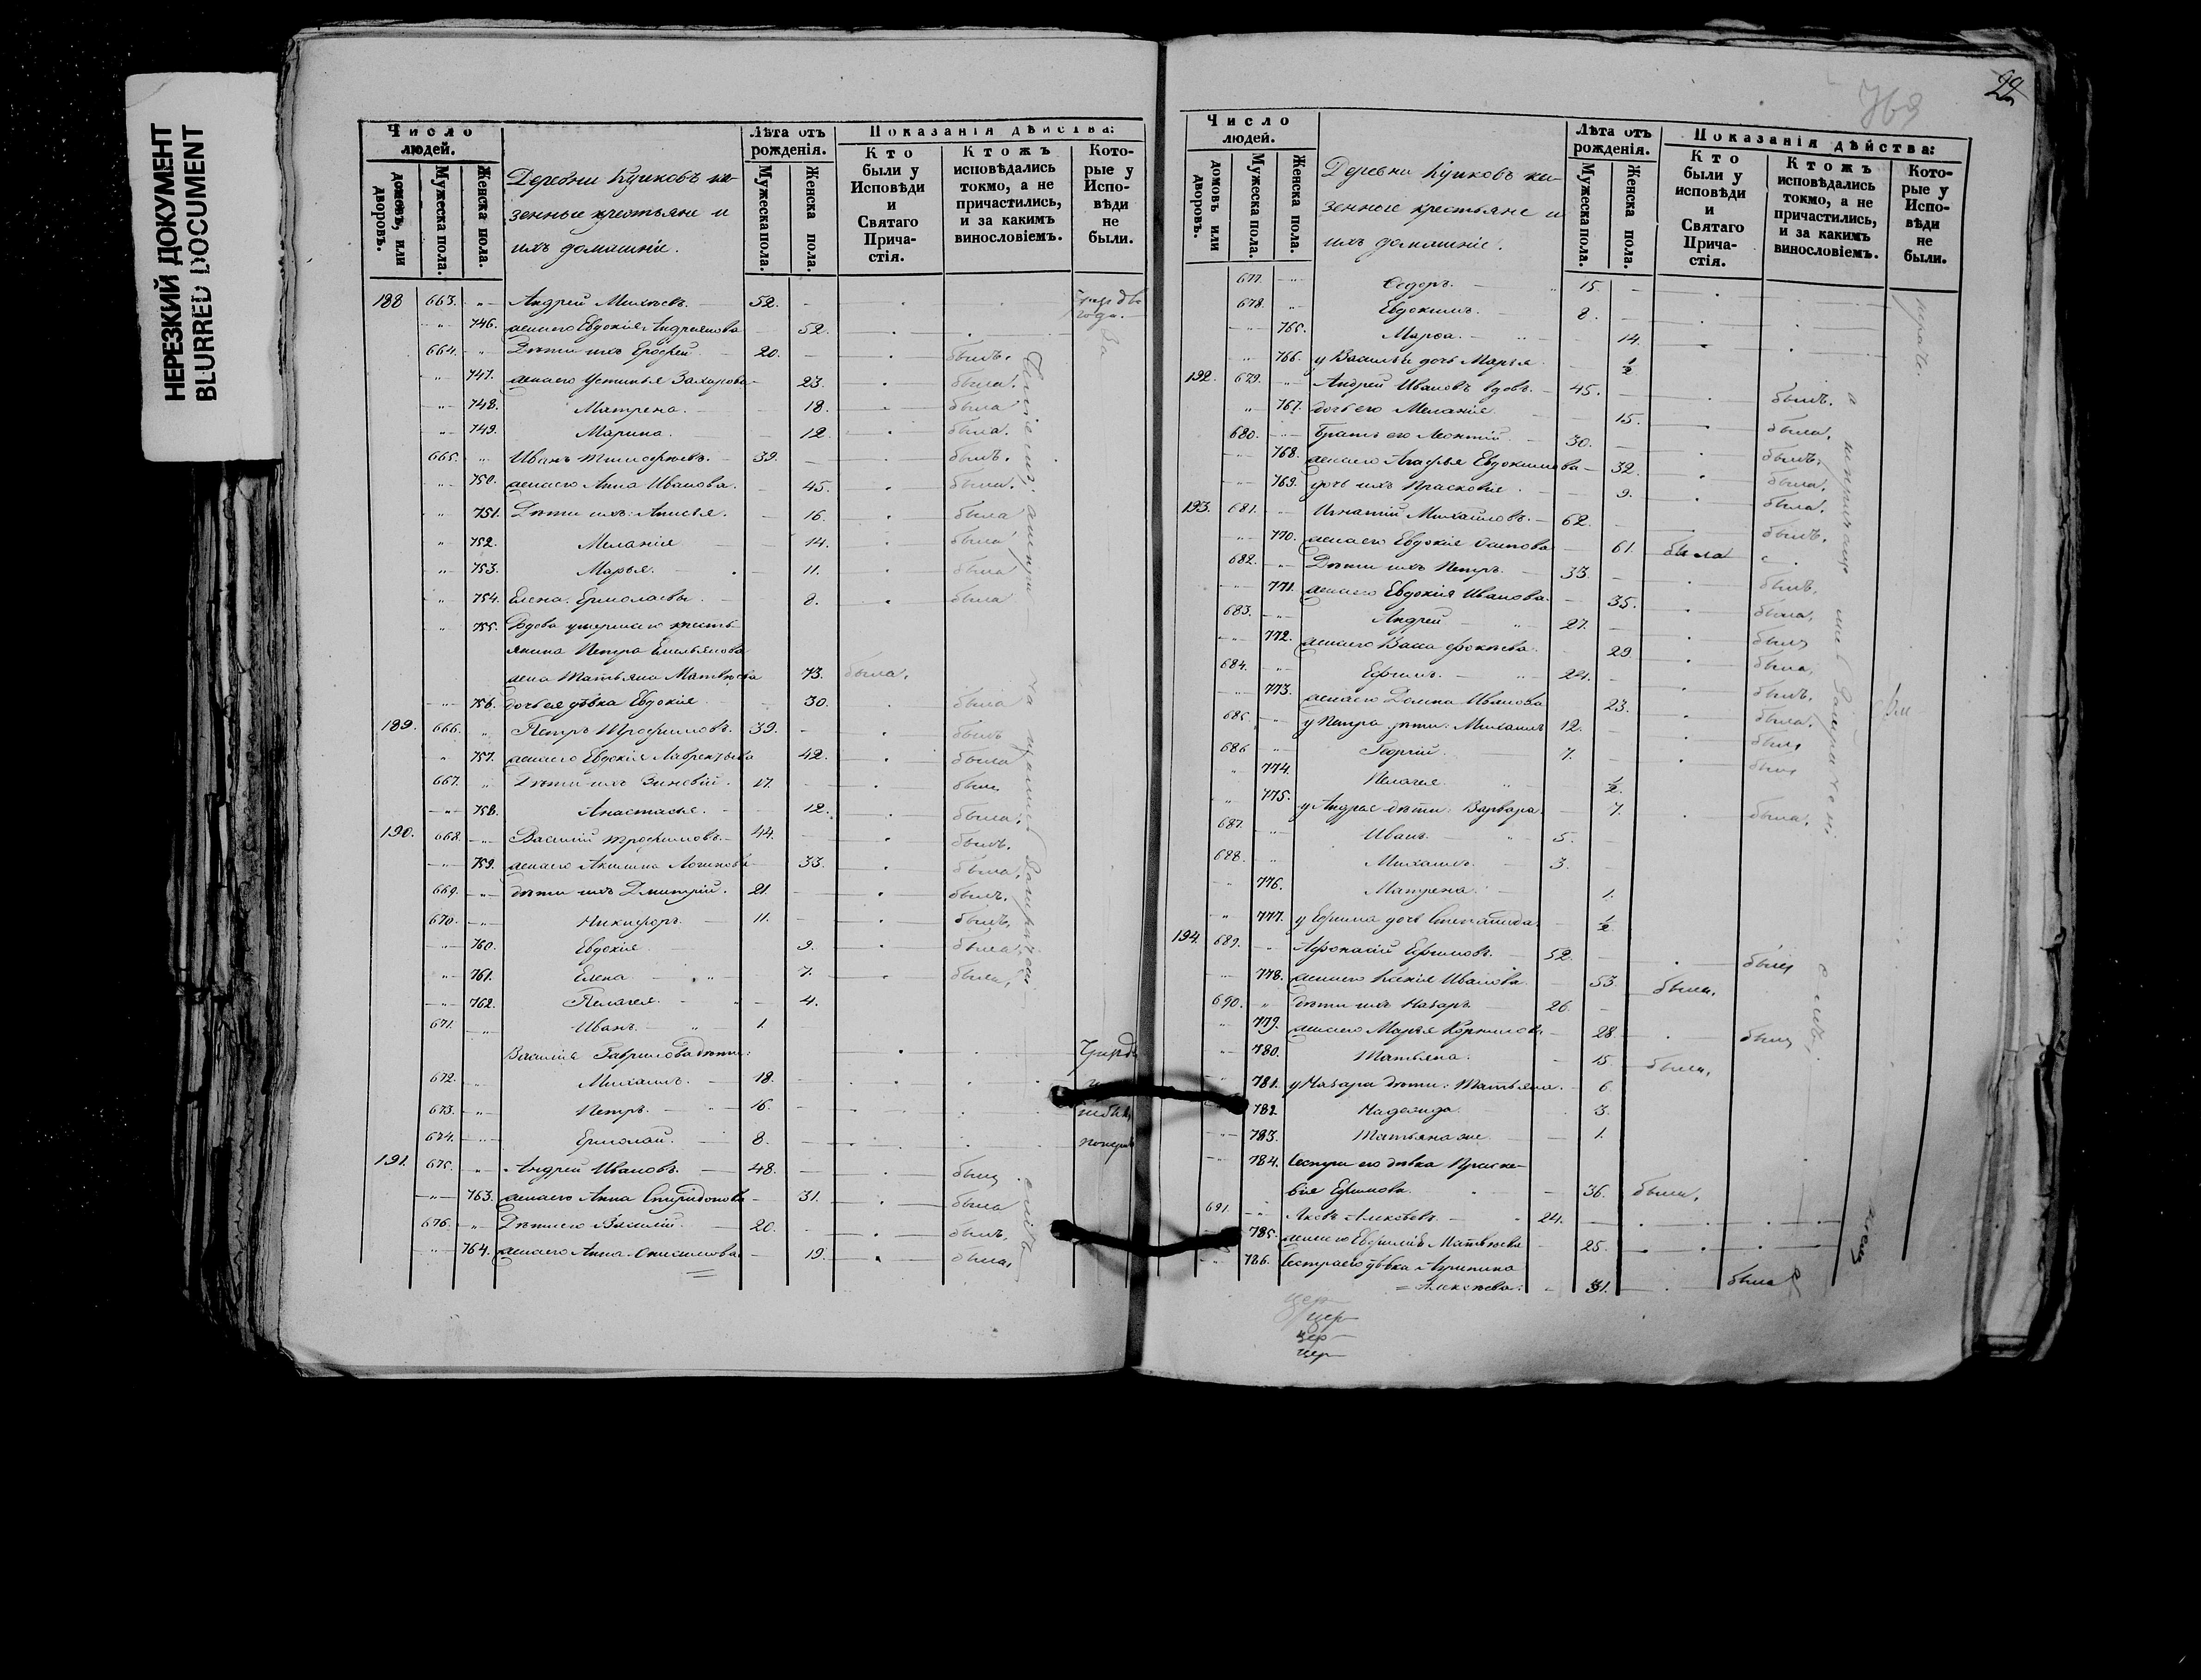 НЕРЕЗКИЙ ДОКУМЕНТ
BLURRED DOCUMENT
Число людей.
домовъ, или дворовъ.
Мужеска пола.
Женска пола.
Деревни Кучковъ ка-
зенные крестьяне и
ихъ домашніе.
Лѣта отъ рожденія.
Мужеска пола.
Женска пола.
Показанія дѣйства:
Кто были у Исповѣди и Святаго Прича-стія.
Ктожъ исповѣдались токмо, а не причастились, и за какимъ винословіемъ.
Кото-рые у Испо-вѣди не были.
188 663. Андрей 52.
746. жена его Евдокія Андреянова 52.
664. Дѣти ихъ Ерофей 20. былъ.
747. жена его Устинья Захарова 23. была.
748. Матрена. 18. была
749. Марина. 12. была.
665. Иванъ Тимофеевъ. 39. былъ.
750. жена его Анна Иванова. 45. была.
751. Дѣти ихъ: Анисья. 16. была
752. Меланія 14. была
753. Марья. 11. была
754. Елена Ермолаева 8. была
755. Вдова умершаго кресть-
янина Петра Емельянова
жена Татьяна Матвѣева 73. была.
756. дочь ея дѣвка Евдокія 30. была
189. 666. Петръ Трофимовъ. 39. былъ
757. жена его Евдокія Лаврентьева 42. была
667. Дѣти ихъ Зиновій. 17. былъ
758. Анастасья. 12. была.
190. 668. Василій Трофимовъ. 44. былъ.
759. жена его Акилина Логинова 33. была.
669. дѣти ихъ Дмитрій. 21. былъ.
670. Никифоръ. 11. былъ.
760. Евдокія 9. была.
761. Елена 7. была.
762. Пелагея. 4.
671. Иванъ. 1.
Василія Гаврилова дѣти:
672. Михаилъ. 18.
673. Петръ. 16.
674. Ермолай. 8.
191. 675. Андрей Ивановъ. 48. былъ
763. жена его Анна Спиридонова 31. была
676. Дѣти его Василій. 20. былъ.
764. жена его Анна Онисимова 19. была.
22
769
Число людей.
домовъ или дворовъ.
Мужеска пола.
Женска пола.
Деревни Кучковъ ка-
зенные крестьяне и
ихъ домашніе.
Лѣта отъ рожденія.
Мужеска пола.
Женска пола.
Показанія дѣйства:
Кто были у исповѣди и Святаго Прича-стія.
Ктожъ исповѣдались токмо, а не причастились, и за какимъ винословіемъ.
Кото-рые у Испо-вѣди не были.
677. Ѳедоръ. 15.
678. Евдокимъ. 8.
765. Марѳа. 14.
766. у Василья дочь Марья 1/2
192. 679. Андрей Ивановъ вдовъ. 45. былъ.
767. дочь его Меланія 15. была.
680. Братъ его Леонтій 30. былъ.
768. жена его Агафья Евдокимова 32. была.
769. дочь ихъ Прасковія. 9. была.
193. 681. Игнатій Михайловъ. 62. былъ.
770. жена его Евдокія Осипова 61. была
682. Дѣти ихъ Петръ. 33. былъ.
771. жена его Евдокія Иванова. 35. была.
683. Андрей 27. былъ
772. жена его Васса Фокѣева. 29. была.
684. Ефимъ. 24. былъ.
773. жена его Домна Иванова 23. была.
685. у Петра дѣти: Михаилъ 12. былъ
686 Георгій. 7. былъ
774. Пелагея 1/2.
775. у Андрея дѣти: Варвара 7. была.
687. Иванъ 5.
688. Михаилъ. 3.
776. Матрена. 1.
777. у Ефима дочь Степанида. 1/2
194. 689. Афонасій Ефимовъ. 52. былъ
778. жена его Ксенія Иванова. 53. была.
690. дѣти ихъ Назаръ 26.
779. жена его Марья Корнилова 28. была
780. Татьяна. 15. была.
781. у Назара дѣти: Татьяна. 6.
782. Надежда. 3.
783. Татьяна же. 1.
784. Сестра его дѣвка Праско-
вія Ефимова. 36. была.
691. Яковъ Алексѣевъ. 24.
785. жена его Евфимія Матвѣева 25.
786. Сестра его дѣвка Агрипина
Алексѣева. 31. была
цер
цер
цер
цер